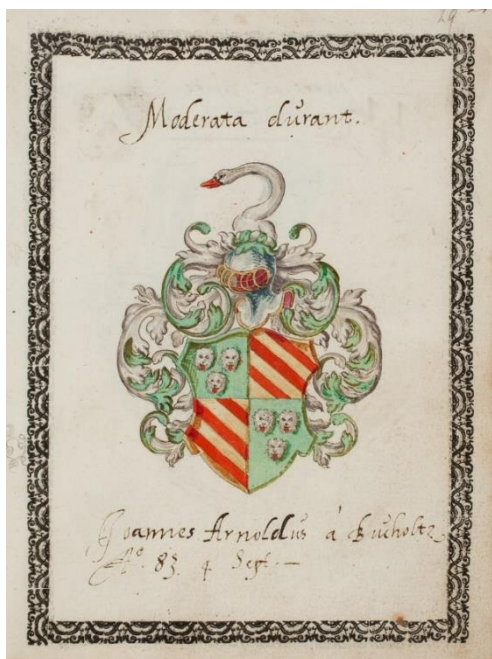 Moderata durant.
Joannes Arnoldus à Bucholtz
Aº. 83 4 Sept. —